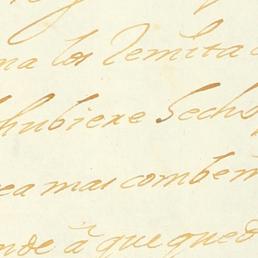 na los Remita a
hubiere Sechs
ea mas combem
nde â que qued